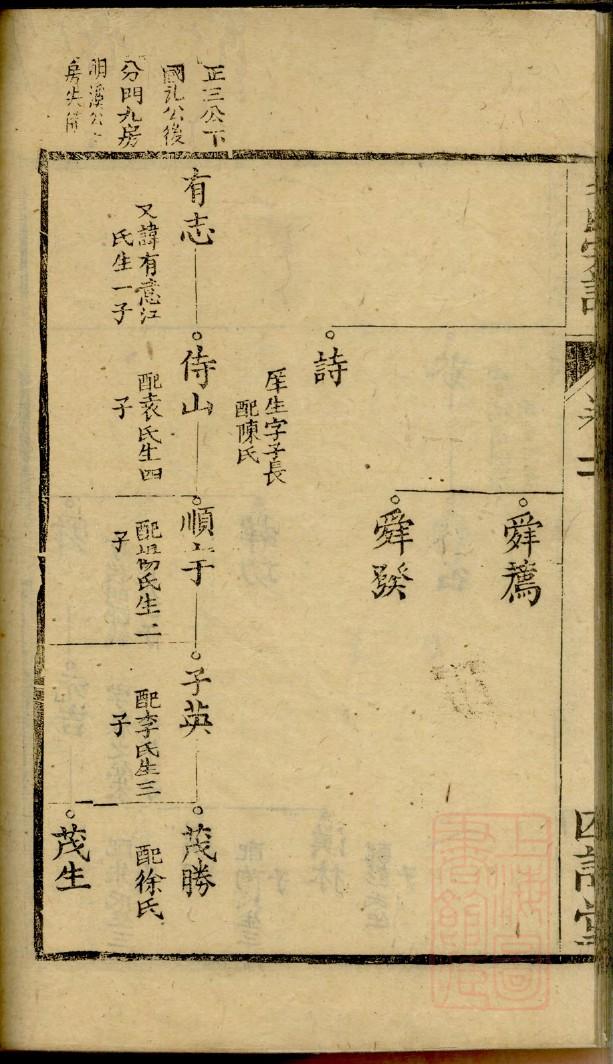 正三公下
國礼公後
分門九房
明溪公
房失備
舜薦
舜發
詩
庠生字子長
配陳氏
有志
又諱有意江
氏生一子
侍山
配袁氏生四
子
順宇
配楊氏生二
子
子英
配李氏生三
子
茂勝
配徐氏
茂生
卷二
四知堂